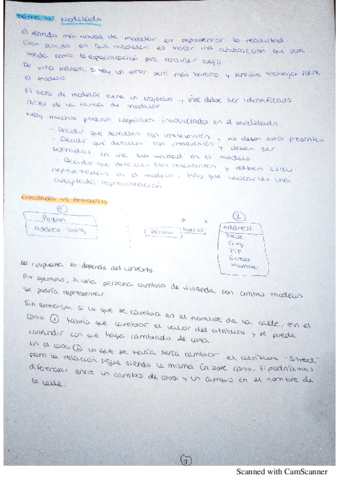 Tema 4: Modelado
El sentido más natural de modelar es representar la realidad.
Otro sentido es que modelar es hacer una abstracción que nos
sirva como la especificación para construir algo.
De esta manera, si hay un error será más barato y sencillo trabajar sobre
el modelo
El acto de modelar tiene un objetivo, y éste debe ser identificado
antes de la tarea de modelar
Hay muchos procesos cognitivos involucrados en el modelado.
- Decidir que detalles son irrelevantes y no deben estar presentes
- Decidir que detalles son irrelevantes y deben ser
en una sola unidad en el modelo
- Decidir que detalles son relevantes y deben estar
representados en el modelo, hay que una
adaptada representación
Entidades vs Atributos
① ②
Person
address String
Person
address
State
City
ZIP
Street
Number
La respuesta es depende del contexto.
Por ejemplo, si una persona cambia de vivienda con ambos modelos
se podría representar
Sin embargo, si lo que se cambia es el nombre de la calle, en el
caso ① habría que cambiar el valor del atributo y se puede
confundir con que haya cambiado de casa
En el caso ② lo que se haría sería cambiar el atributo "Street"
pero la relación sigue siendo la misma (en este caso, si podríamos
diferenciar entre un cambio de casa y un cambio en el nombre de
la calle.
Scanned with CamScanner